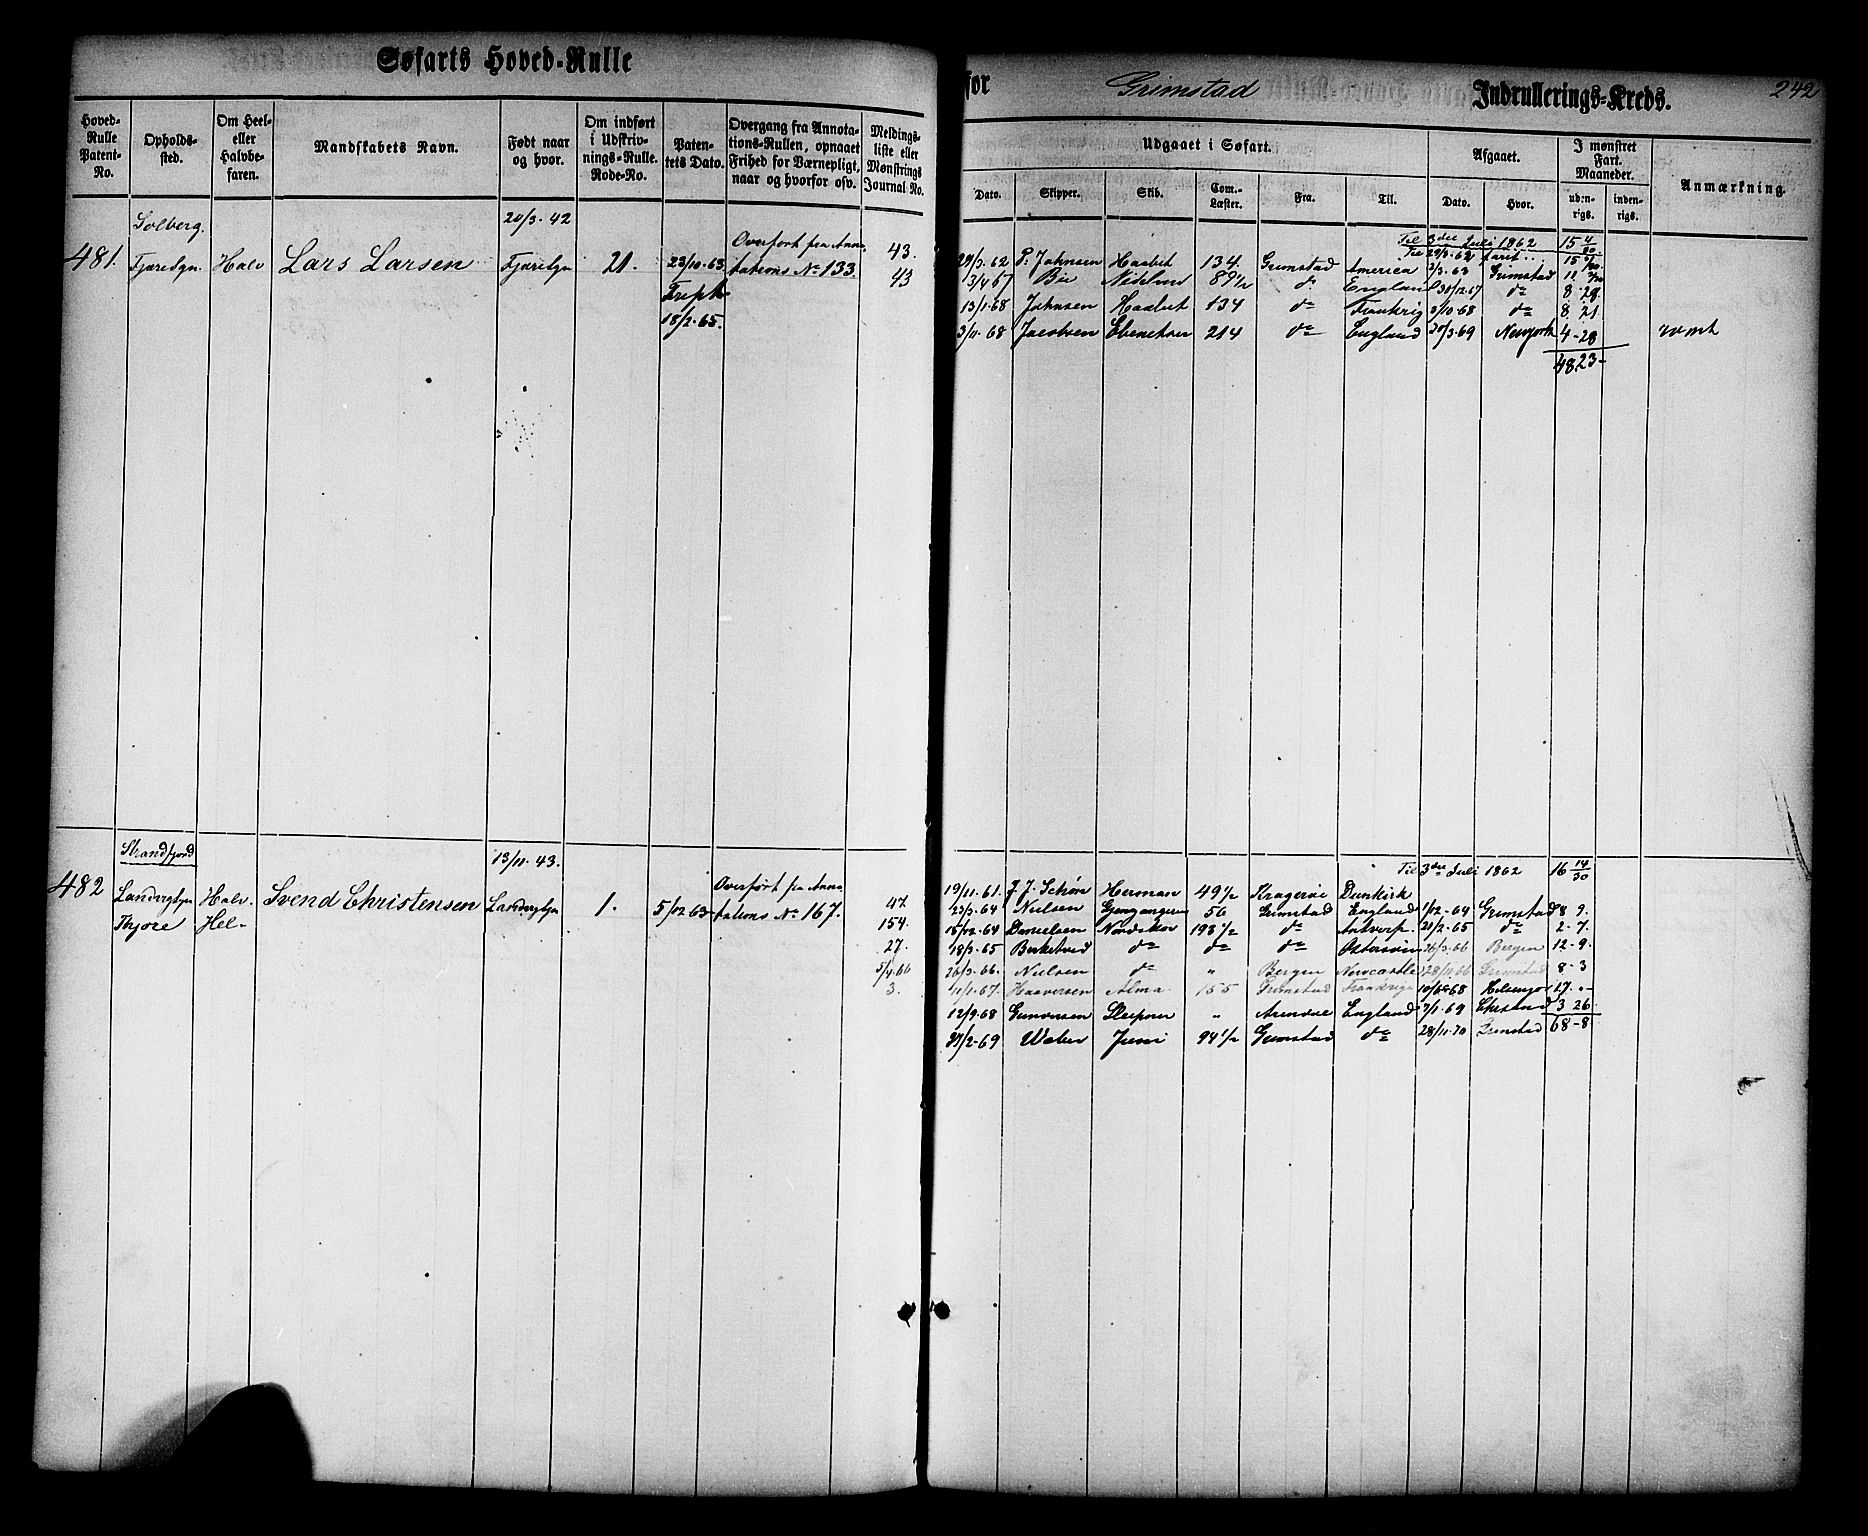 Søfarts Hoved-Rulle
for Grimstad Indrullerings-Kreds. 242
Hoved-Rulle Patent-No.
Opholds-sted.
Om Heel- eller Halvbe-faren.
Mandskabets Navn.
Født naar og hvor.
Om indført i Udskriv-nings-Rulle. Rode-No.
Paten-tets Dato.
Overgang fra Annota-tions-Rullen, opnaaet Frihed for Værnepligt, naar og hvorfor osv.
Meldings-liste eller Mønstrings Journal No.
Udgaaet i Søfart.
Dato. Skipper. Skib. Com.-Læster. Fra. Til.
Afgaaet.
Dato. Hvor.
I mønstret Fart. Maaneder.
uden-rigs. inden-rigs.
Anmærkning.
Solberg. 20/3. 42
481. Fjæresgn. Halv Lars Larsen Fjæresgn 21. 23/10.63 Overført fra Anno-tations No 133 43.
43
18/2.65.
Til 3die Juli 1862 15 4/30
29/3.62 P. Johnsen Haabet 134. Grimstad America 2/3.63 Grimstad
13/4 67 Bie 89 1/2 do England 30/12.67 do 8 28
13/1.68 Johnsen Haabet 134 do Frankrig 3/10.68 do 8 21
3/11.68 Jacobsen Ebenetser 214 do England 30/3.69 Newyork 4-28
48 23-
Strandfjord 13/11.43.
482 Landvigsgn Halv. Svend Christensen Landvigsgn 1. 5/12 63 Overført fra Anno-tations No 167. 47
Thjore Hel- 154.
27.
5/4.66
3.
Til 3die Juli 1862 16 14/30
19/11.61. J. J. Schøn Herman 49 1/2 Kragerøe Dunkirk
23/3.64 Nielsen Gjengangeren 56 Grimstad England 1/12.64 Grimstad 8 9.
15/12.64 Danielsen Nordskov 198 1/2 do Antverp. 21/2.65 do 2-7.
18/3.65 Birketved do do do Østersøen 26/3.66 Bergen 12-9.
26/3.66. Nielsen do " Bergen Newcastle 28/11.66 Grimstad 8-3
11/1.67. Haaversen Alma 155 Grimstad Frankrige 10/6.68 Helsingør 17. "-
12/9.68 Gunvorsen Sleipner " Arendal England 7/1.69 Chrsand 3 26
27/2-69 Weber Juni 94 1/2 Grimstad do 28/11.70 Grimstad 68-8